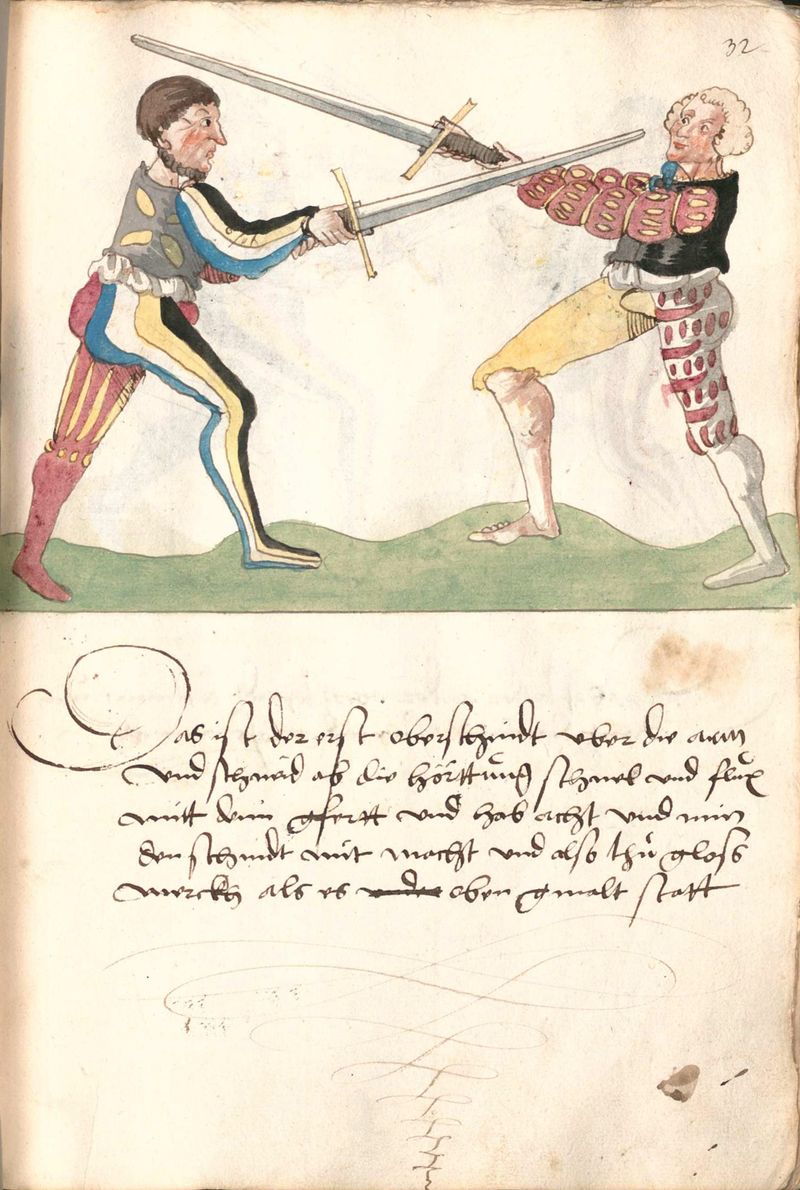 32
Das ist der erst oberschnidt vber die arm
vnd schneid ab die hörttung schnel vnd flux
mitt dim gfertt vnd hab acht vnd nim
den schnidt mit macht vnd also thů gloß
merckh als es oben gmalt statt